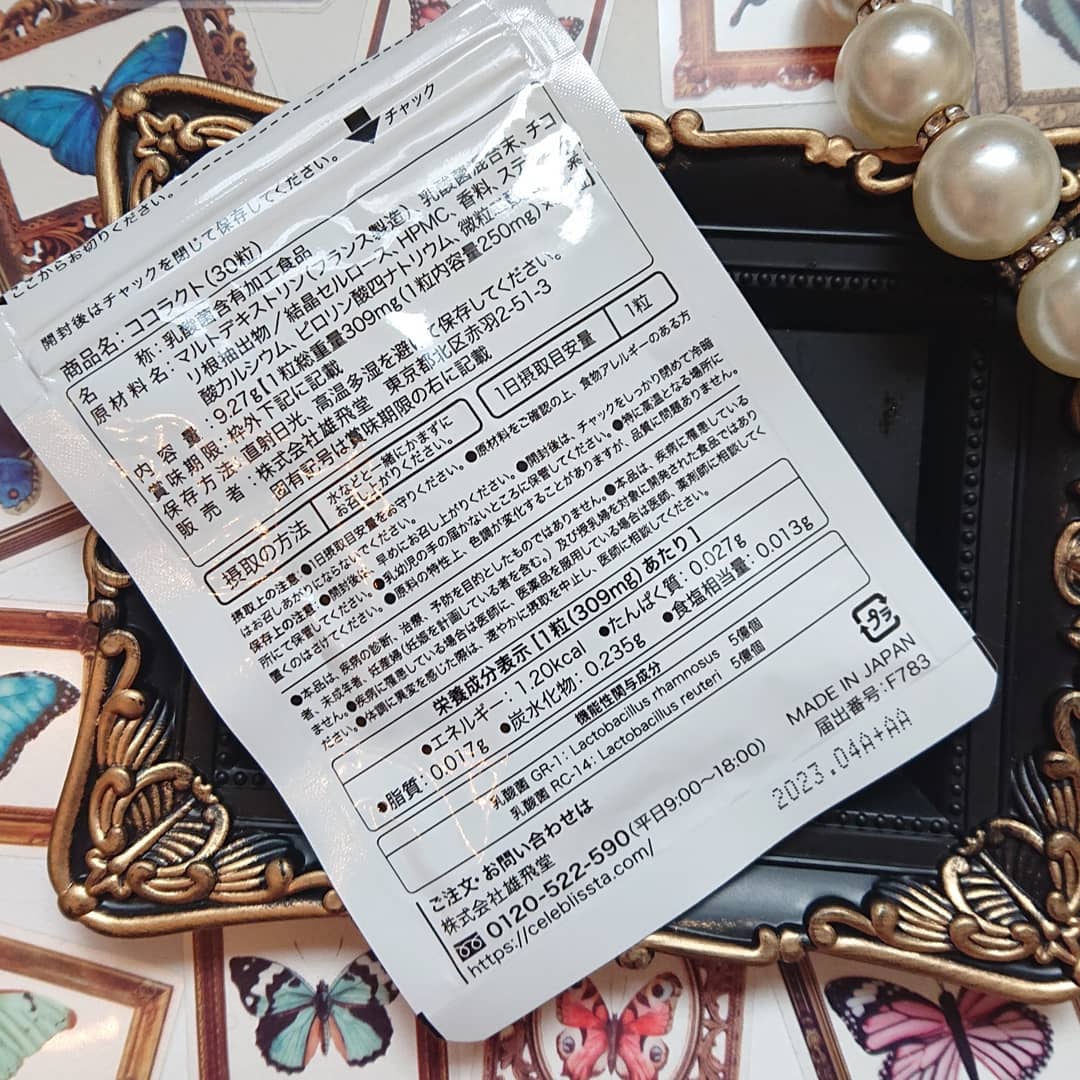 ここからお切りください。
チャック
開封後はチャックを閉じて保存してください。
商品名：ココラクト(30粒)
名 称：乳酸菌含有加工食品
原材料名：マルトデキストリン(フランス製造)、乳酸菌混合末、チコ
リ根抽出物／結晶セルロース、HPMC、香料、ステアリン
酸カルシウム、ピロリン酸四ナトリウム、微粒
内 容 量：9.27g【1粒総重量309mg(1粒内容量250mg)×
賞味期限：枠外下記に記載
保存方法：直射日光、高温多湿を避けて保存してください。
販 売 者：株式会社雄飛堂 東京都北区赤羽2-51-3
固有記号は賞味期限の右に記載
摂取の方法
水などと一緒にかまずに
お召し上がりください。
1日摂取目安量
1粒
摂取上の注意：●1日摂取目安量をお守りください。●原材料をご確認の上、食物アレルギーのある方
はお召しあがりにならないでください。●開封後は、早めにお召し上がりください。
保存上の注意：●開封後は、チャックをしっかり閉めて冷暗
所にて保管してください。●乳幼児の手の届かないところに保管してください。●特に高温となる場所に
置くのはさけてください。●原料の特性上、色調が変化することがありますが、品質に問題ありません。
●本品は、疾病の診断、治療、予防を目的としたものではありません。●本品は、疾病に罹患している
者、未成年者、妊産婦(妊娠を計画している者を含む。)及び授乳婦を対象に開発された食品ではあり
ません。●疾病に罹患している場合は医師に、医薬品を服用している場合は医師、薬剤師に相談してく
ださい。●体調に異変を感じた際は、速やかに摂取を中止し、医師に相談してください。
栄養成分表示【1粒(309mg)あたり】
●エネルギー：1.20kcal ●たんぱく質：0.027g
●脂質：0.017g ●炭水化物：0.235g ●食塩相当量：0.013g
機能性関与成分
乳酸菌 GR-1：Lactobacillus rhamnosus 5億個
乳酸菌 RC-14：Lactobacillus reuteri 5億個
ご注文・お問い合わせは
株式会社雄飛堂
0120-522-590(平日9:00～18:00)
https://celeblissta.com/
プラ
MADE IN JAPAN
届出番号：F783
2023.04A+AA